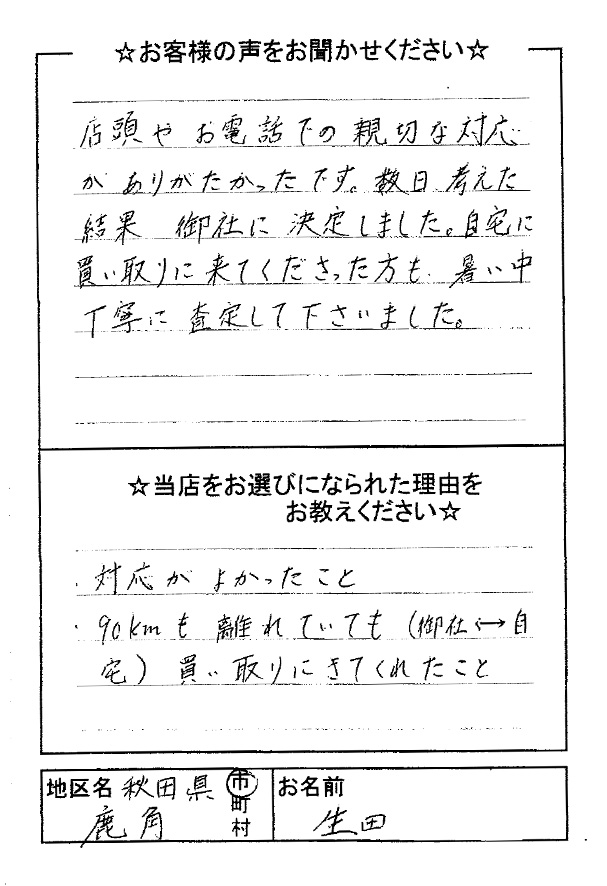 ☆お客様の声をお聞かせください☆
店頭や お電話での 親切な対応
が ありがたかったです。数日 考えた
結果 御社に 決定しました。自宅に
買い取りに 来てくださった方も、暑い中
丁寧に 査定して下さいました。
☆当店をお選びになられた理由を
お教えください☆
・対応が よかったこと
・90kmも 離れていても (御社↔自
宅) 買い取りにきてくれたこと
地区名 秋田県 市
町
鹿角 村
お名前
生田